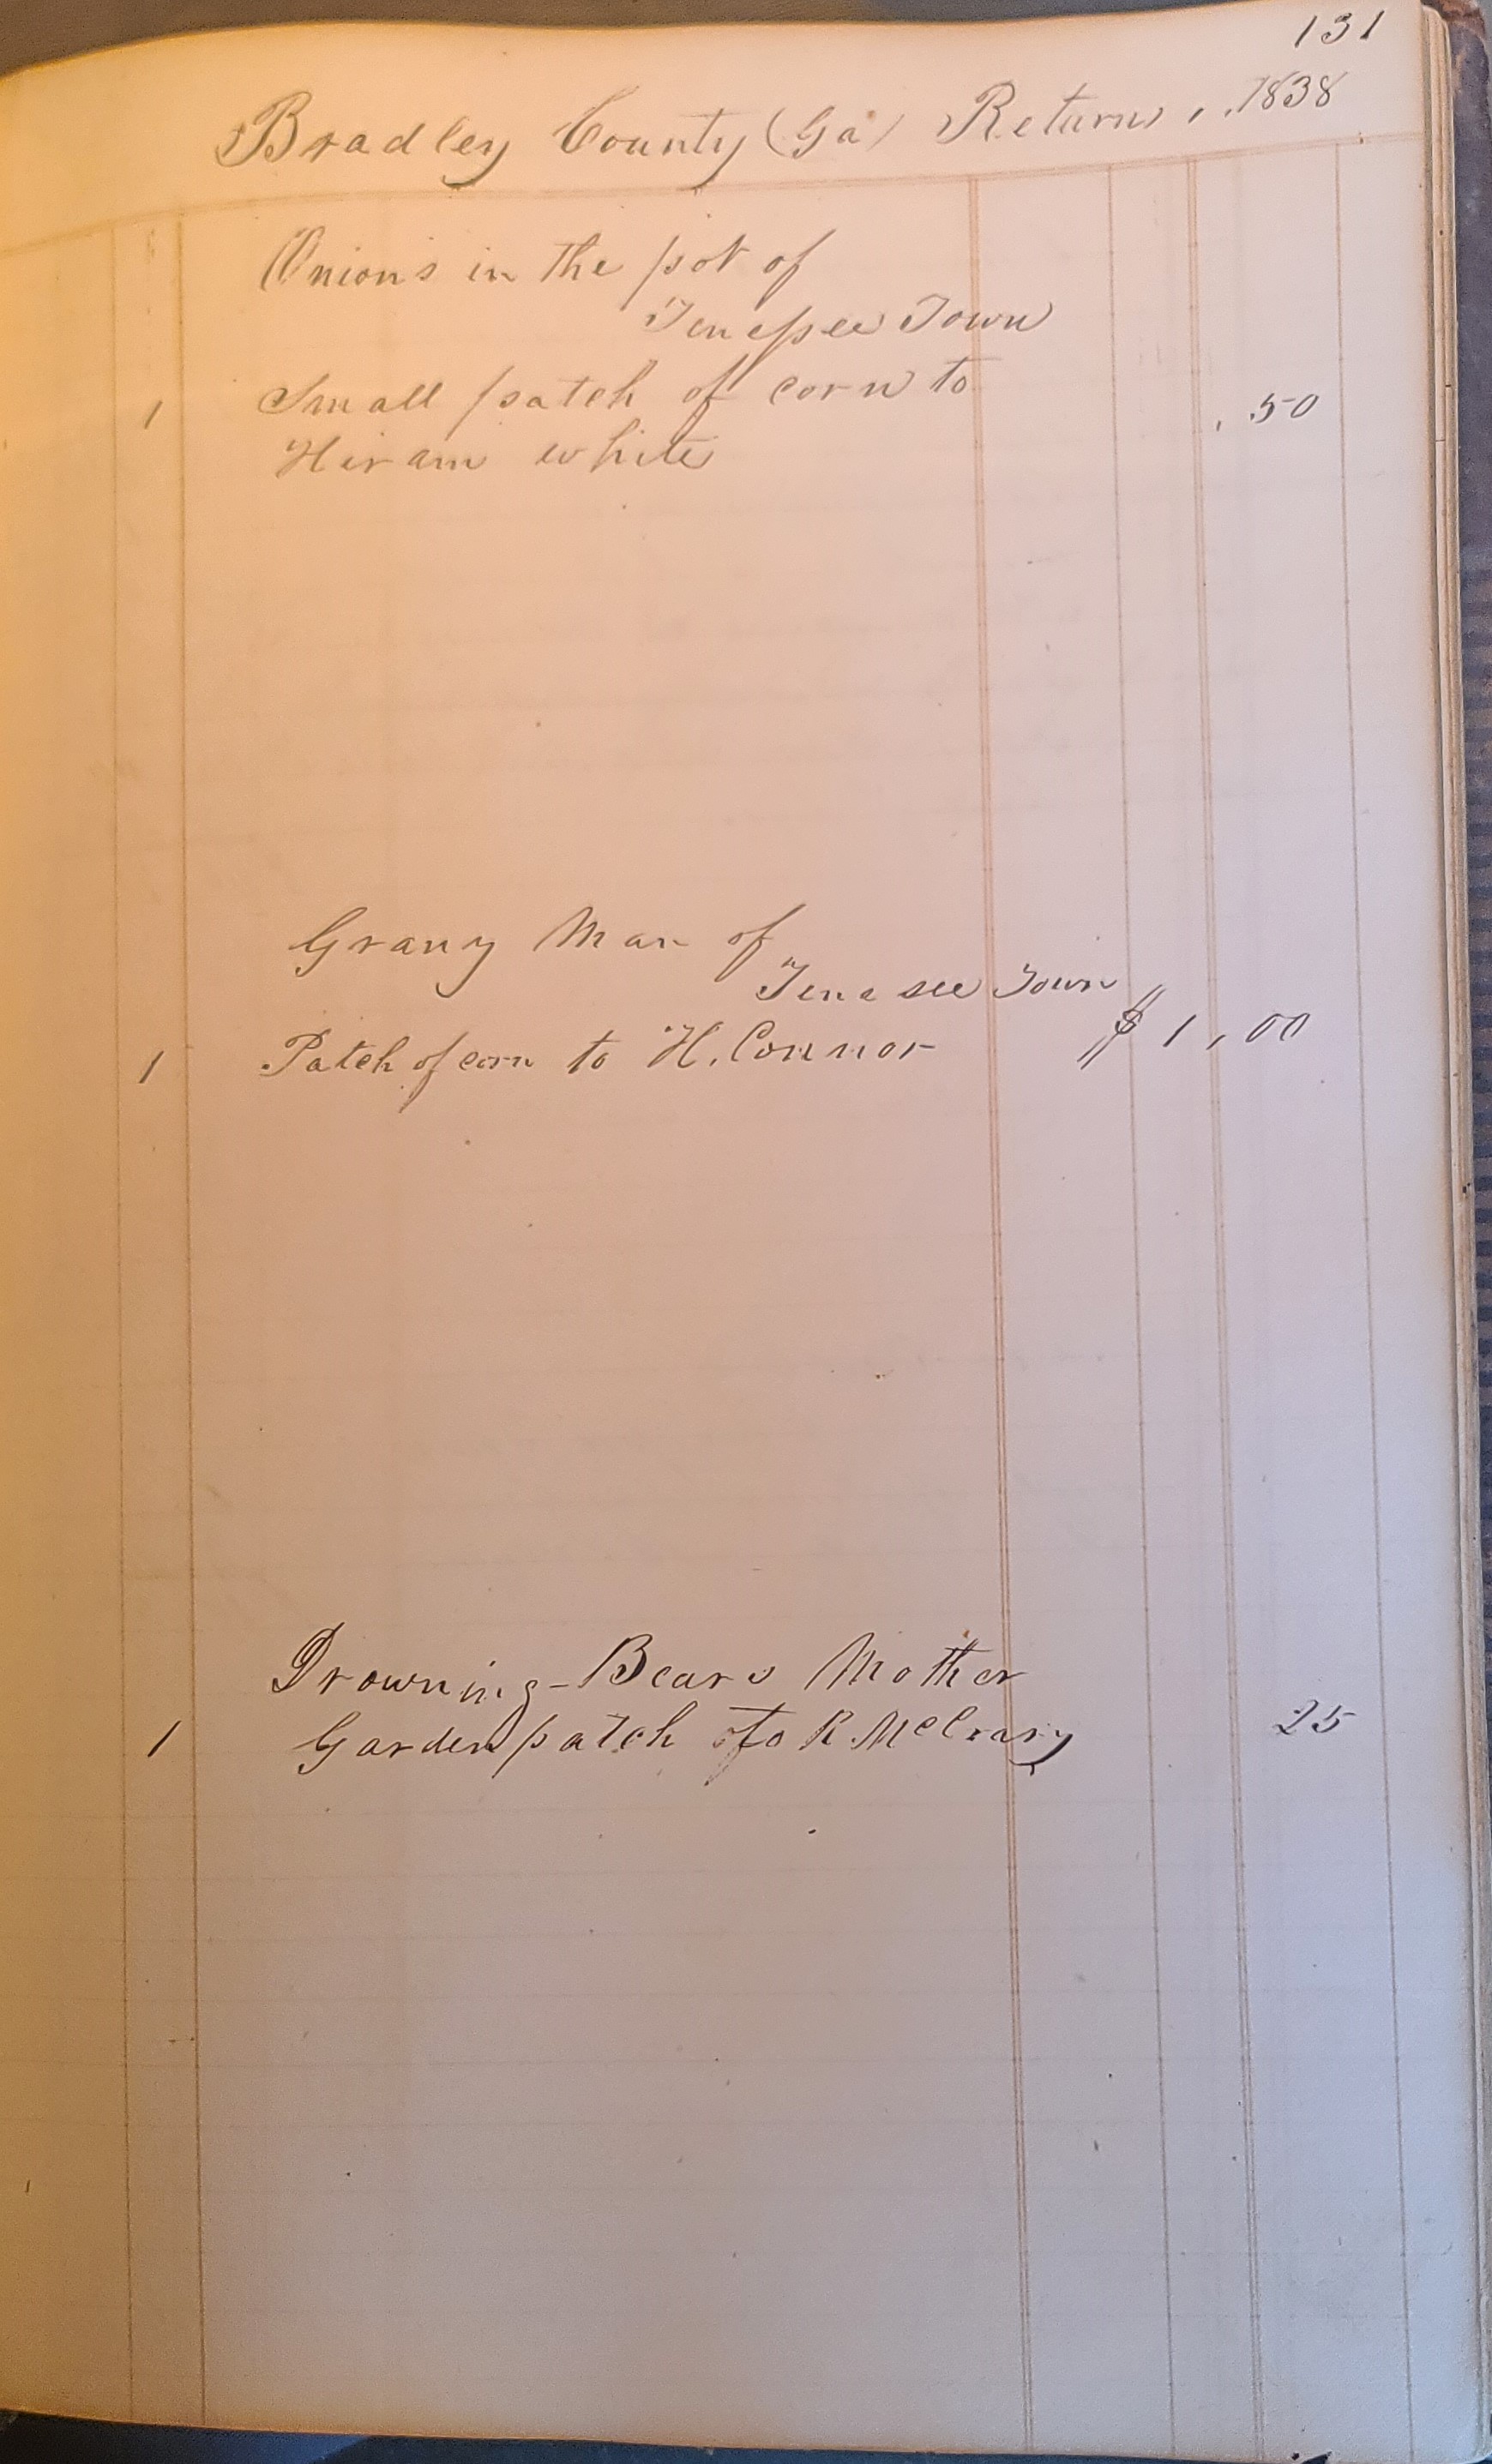 131
Bradley County (Ga) Return, 1838
Onions in the pot of
Tenessee Town
1 Small patch of corn to .50
Hiram white
Grany Man of
Tenasee Town
1 Patch of corn to H. Connor $1,00
Drowning-Bears Mother
1 Garden patch to R McCrary 25